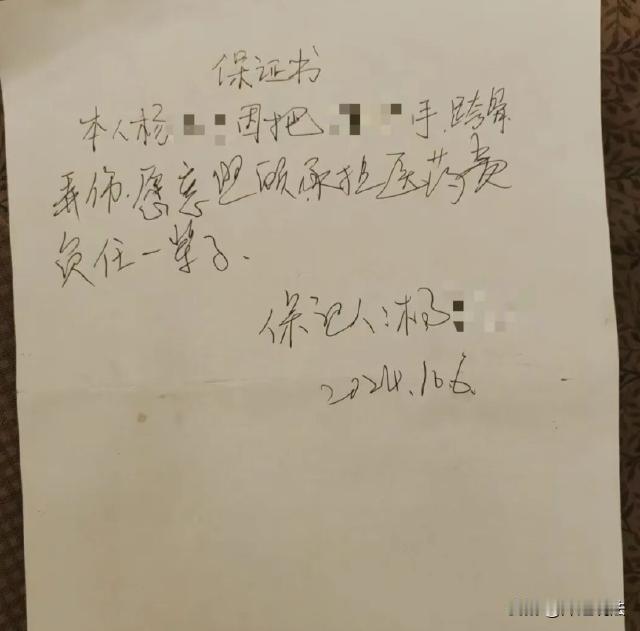 保证书
本人杨 因把 手.跨骨
弄伤.愿意 照顾承担医药费
负任一辈子.
保证人:杨
2024.10.6.